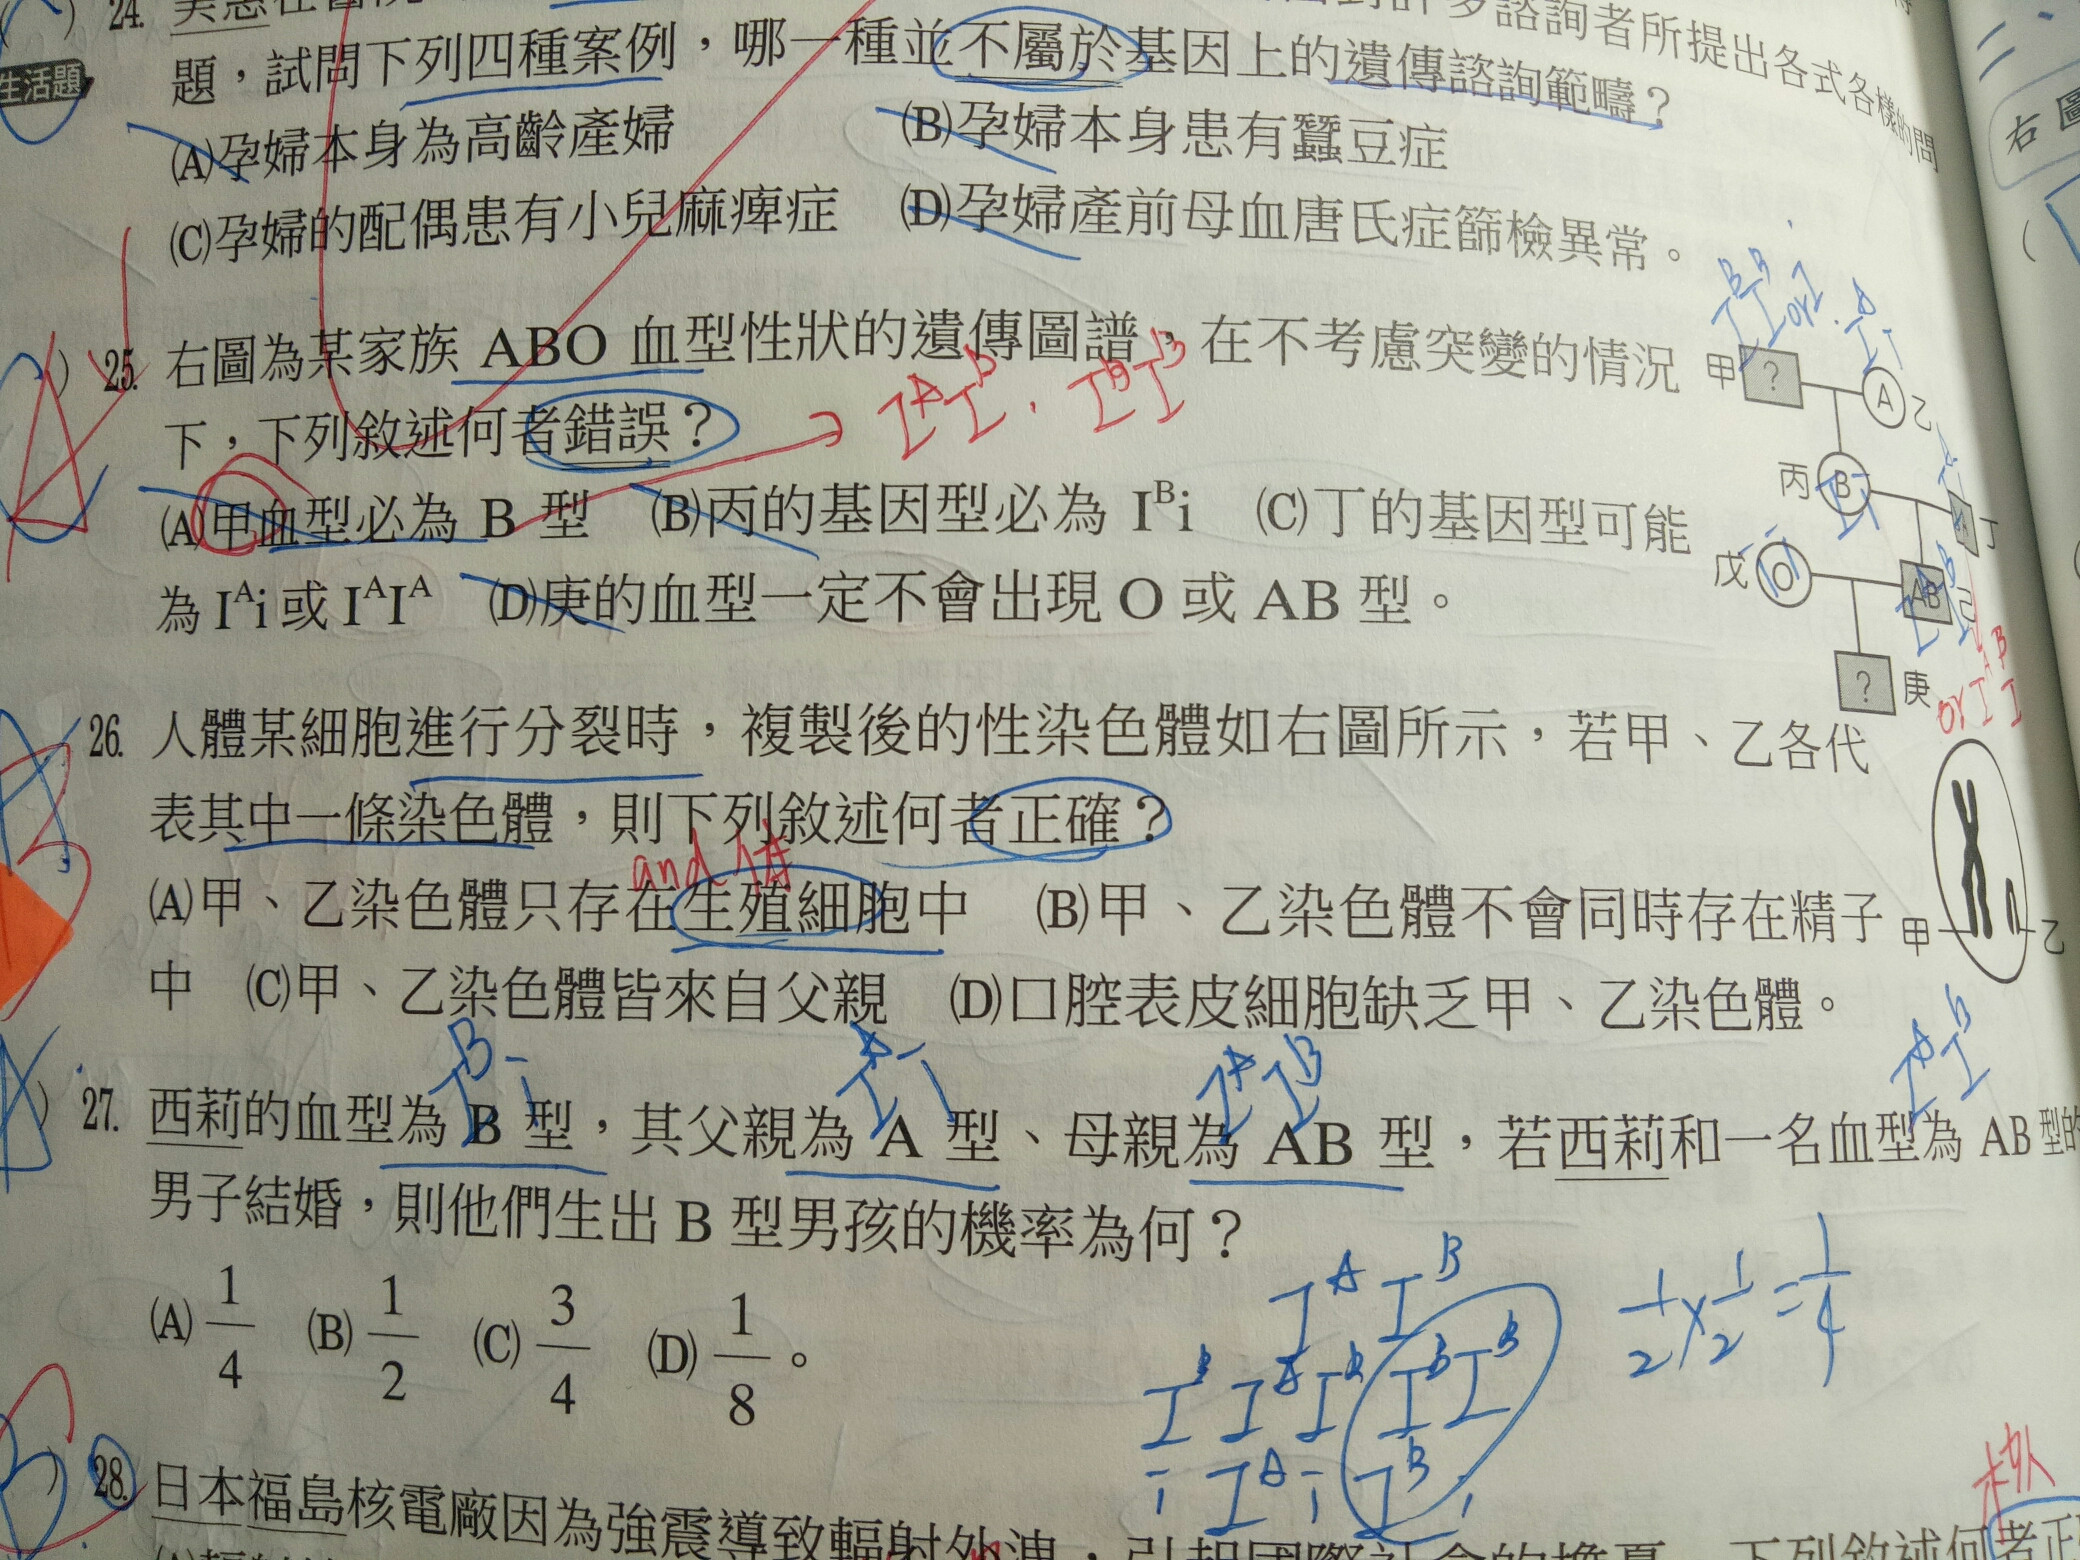 24.
題，試問下列四種案例，哪一種並不屬於基因上的遺傳諮詢範疇？
諮詢者所提出各式各樣的問
生活題
(A)孕婦本身為高齡產婦 (B)孕婦本身患有蠶豆症
(C)孕婦的配偶患有小兒麻痺症 (D)孕婦產前母血唐氏症篩檢異常。
25. 右圖為某家族 ABO 血型性狀的遺傳圖譜，在不考慮突變的情況
下，下列敘述何者錯誤？
I^A I^B , I^B I^B
(A)甲血型必為 B 型 (B)丙的基因型必為 I^B i (C)丁的基因型可能
為 I^A i 或 I^A I^A (D)庚的血型一定不會出現 O 或 AB 型。
甲 ? A 乙
丙 B 丁
戊 O AB 己
? 庚
or I^A I^B
26. 人體某細胞進行分裂時，複製後的性染色體如右圖所示，若甲、乙各代
表其中一條染色體，則下列敘述何者正確？
and 体
(A)甲、乙染色體只存在生殖細胞中 (B)甲、乙染色體不會同時存在精子
中 (C)甲、乙染色體皆來自父親 (D)口腔表皮細胞缺乏甲、乙染色體。
甲 乙
I^B i I^A i I^A I^B I^A I^B
27. 西莉的血型為 B 型，其父親為 A 型、母親為 AB 型，若西莉和一名血型為 AB 型的
男子結婚，則他們生出 B 型男孩的機率為何？
(A) 1/4 (B) 1/2 (C) 3/4 (D) 1/8 。
I^A I^B
I^B I^A I^B I^B I^B
i I^A i I^B i
1/2 x 1/2 = 1/4
28. 日本福島核電廠因為強震導致輻射外洩，引起國際社會的擔憂。下列敘述何者正